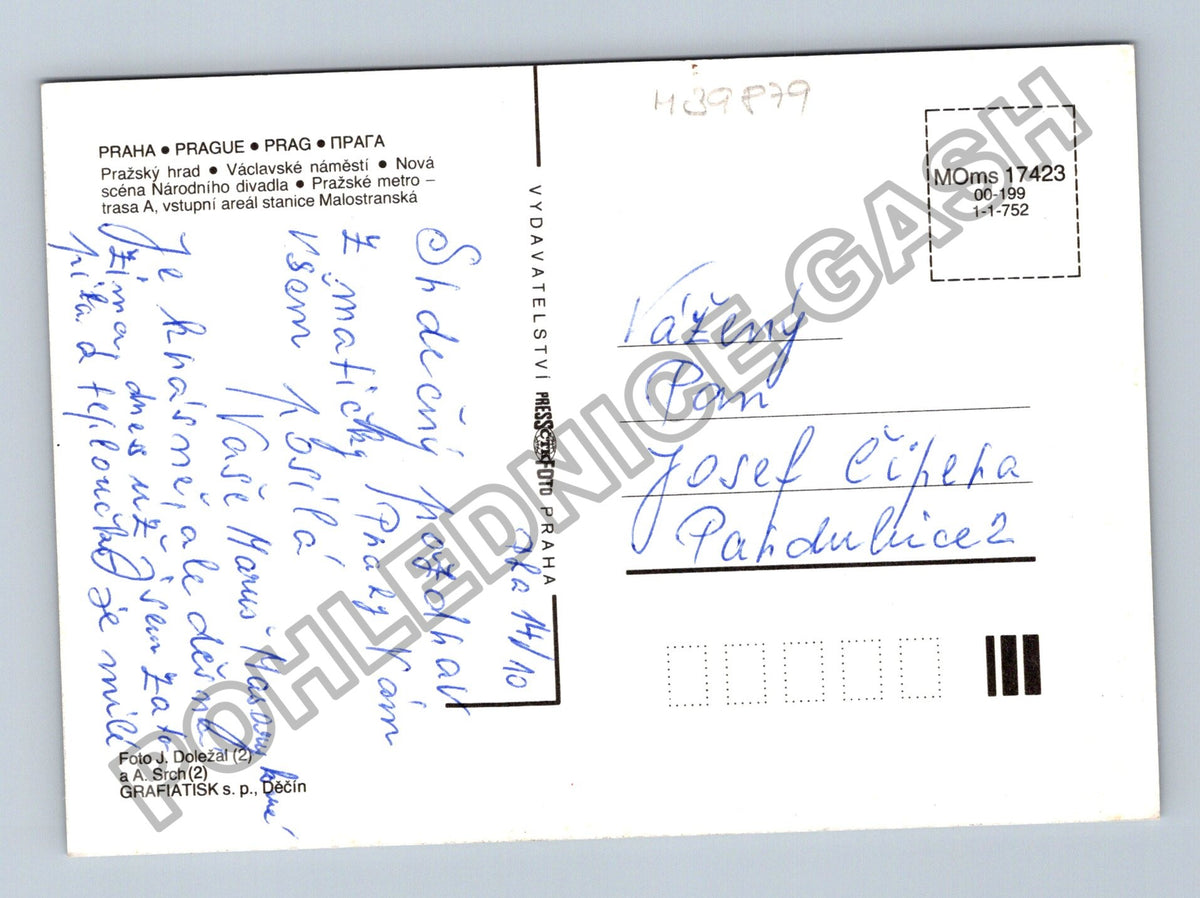 M39879
PRAHA ● PRAGUE ● PRAG ● ПРАГА
Pražský hrad ● Václavské náměstí ● Nová
scéna Národního divadla ● Pražské metro –
trasa A, vstupní areál stanice Malostranská
VYDAVATELSTVÍ PRESSFOTO PRAHA
ČTK
MOms 17423
00-199
1-1-752
Pha 14/10
Srdečný pozdrav
z matičky Prahy Vám
všem posílá
Vaše Maruš
Je krásně, ale děsná
zima, dnes už jsem zato
pila a teploučko je milé
Vážený
Pan
Josef Čipera
Pardubice 2
Foto J. Doležal (2)
a A. Srch (2)
GRAFIATISK s. p., Děčín
POHLEDNICE-GASH